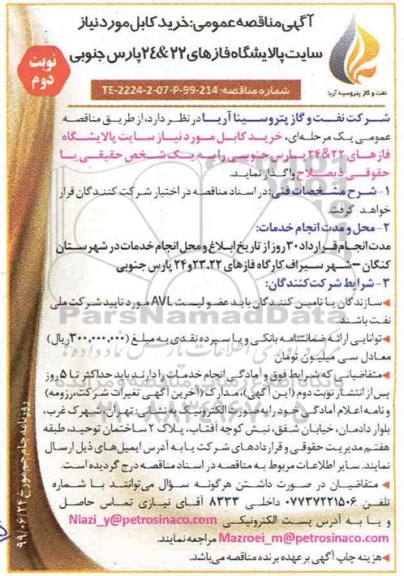 آگهی مناقصه عمومی: خرید کابل مورد نیاز
سایت پالایشگاه فازهای ۲۲&۲۴ پارس جنوبی
نوبت دوم
نفت و گاز پتروسینا آریا
شماره مناقصه: TE-2224-2-07-P-99-214
شرکت نفت و گاز پتروسینا آریا در نظر دارد، از طریق مناقصه
عمومی یک مرحله‌ای، خرید کابل مورد نیاز سایت پالایشگاه
فازهای ۲۲&۲۴ پارس جنوبی را به یک شخص حقیقی یا
حقوقی ذیصلاح واگذار نماید.
۱- شرح مشخصات فنی: در اسناد مناقصه در اختیار شرکت کنندگان قرار
خواهد گرفت.
۲- محل و مدت انجام خدمات:
مدت انجام قرارداد ۳۰ روز از تاریخ ابلاغ و محل انجام خدمات در شهرستان
کنگان – شهر سیراف کارگاه فازهای ۲۲،۲۳ و ۲۴ پارس جنوبی
۳- شرایط شرکت کنندگان:
سازندگان یا تامین کنندگان باید عضو لیست AVL مورد تایید شرکت ملی
نفت باشند.
توانایی ارائه ضمانتنامه بانکی و یا سپرده نقدی به مبلغ (۳۰۰،۰۰۰،۰۰۰ ریال)
معادل سی میلیون تومان
متقاضیانی که شرایط فوق و آمادگی انجام خدمات را دارند باید حداکثر تا ۵ روز
پس از انتشار نوبت دوم (این آگهی)، مدارک (آخرین آگهی تغییرات شرکت، رزومه)
و نامه اعلام آمادگی خود را به صورت الکترونیکی یا به نشانی تهران، شهرک غرب،
بلوار دادمان، خیابان شفق، نبش کوچه آفتاب، پلاک ۲ ساختمان توحید، طبقه
هفتم مدیریت حقوقی و قراردادهای شرکت یا به آدرس ایمیل‌های ذیل ارسال
نمایند. سایر اطلاعات مربوط به مناقصه در اسناد مناقصه درج گردیده است.
متقاضیان در صورت داشتن هرگونه سؤال می‌توانند با شماره
تلفن ۰۷۷۳۷۲۲۱۵۰۶ داخلی ۸۳۳۳ آقای نیازی تماس حاصل
و یا به آدرس پست الکترونیکی Niazi_y@petrosinaco.com
Mazroei_m@petrosinaco.com مراجعه نمایند.
هزینه چاپ آگهی بر عهده برنده مناقصه می‌باشد.
روزنامه جام جم مورخ ۹۹/۰۶/۲۲
ParsNamadData